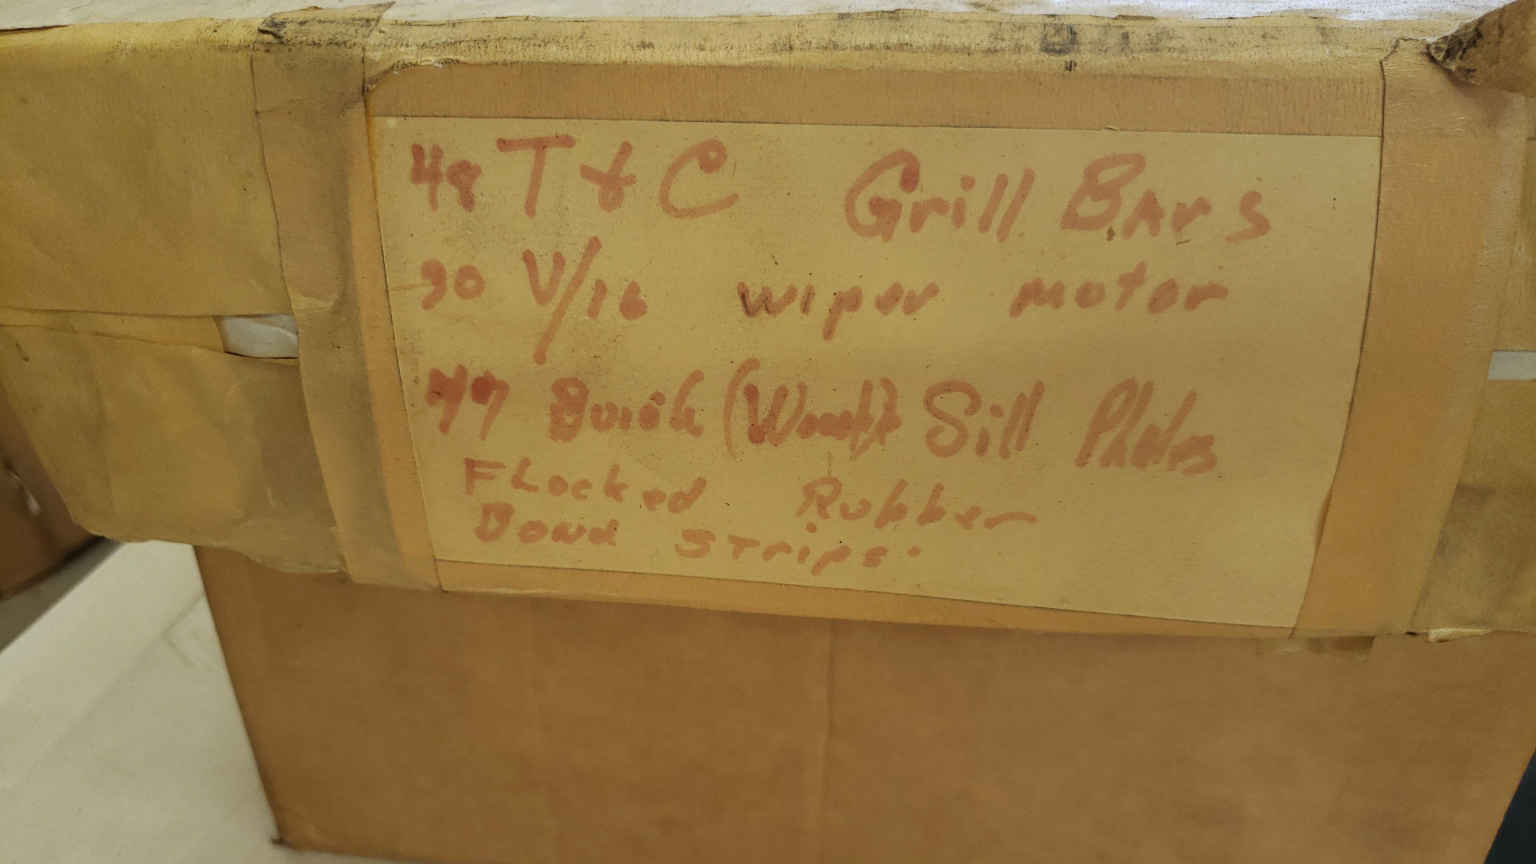 48 T & C Grill Bars
30 V/16 wiper motor
47 Buick (Wood) Sill Plates
Flocked Rubber
Bond Strips.